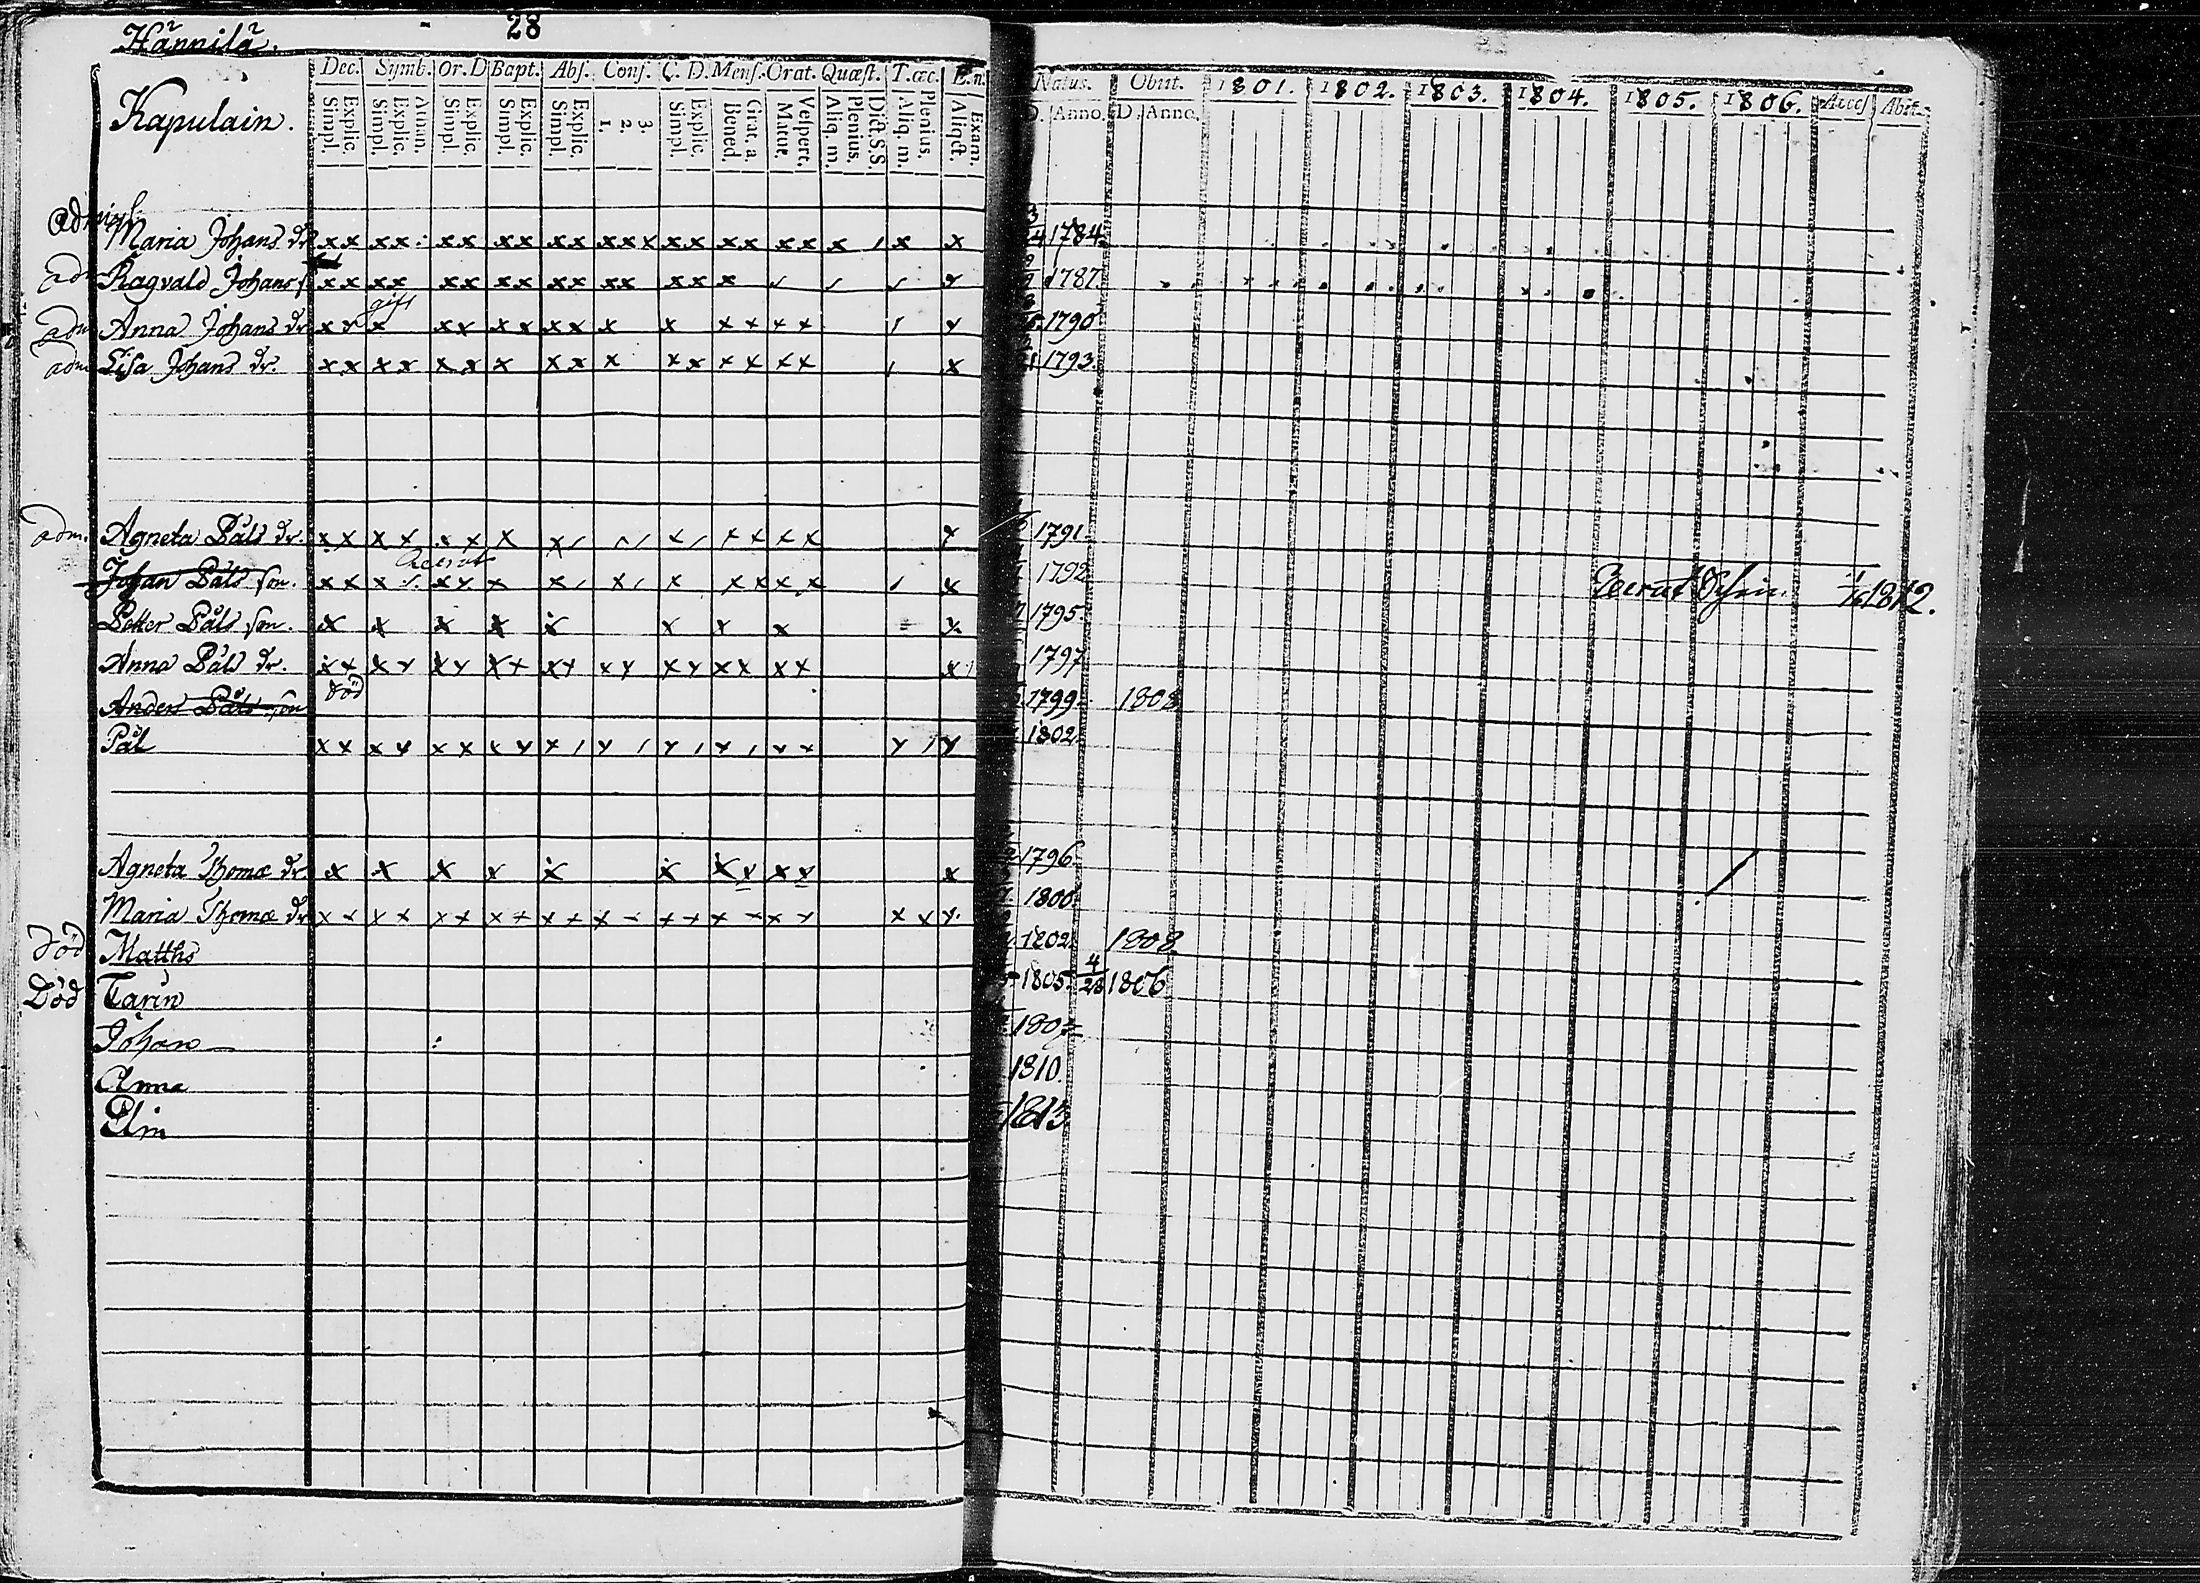 Hännilä. 28
Kapulain.
Dec. Symb. Or. D Bapt. Abs. Conf. C. D. Mens. Orat. Quæst. T. œc. Natus. Obiit. 1801. 1802. 1803. 1804. 1805. 1806. Access Abit
Simpl. Explic. Simpl. Explic. Athan. Simpl. Explic. Simpl. Explic. Simpl. Explic. 1. 2. 3. Simpl. Explic. Bened. Grat. a. Matut. Vespert. Aliq. m. Plenius. Dict. S.S. Aliq. m. Plenius. Aliqct. Exam. D. Anno. D. Anno.
Maria Johans dr x x x x x x x x x x x x x x x x x x x x x x 1784.
adm Ragvald Johans s x x x x x x x x x x x x x x x 1787.
gift
adm Anna Johans dr x x x x x x x x x x x x x x x 1790
adm Lisa Johans dr. x x x x x x x x x x x x x x x x x 1793.
adm. Agneta Påls dr. x x x x x x x x x x x x x x 1791.
Johan Påls son. x x x x x x x x x x x x x x 1792 1812.
Petter Påls son. x x x x x x x x x 1795.
Anna Påls dr. x x x x x x x x x x x x x x x x x x x 1797
död
Anders Påls son 1799. 1808
Pål x x x x x x x x x x x x x x x x 1802.
Agneta Thomæ dr x x x x x x x x x x x 1796
Maria Thomæ dr x x x x x x x x x x x x x x x x x x x x x 1800
död Matths 1802. 1808
Död Carin 1805. 4/28 1806
Johan
Anna 1810.
Elin 1813.